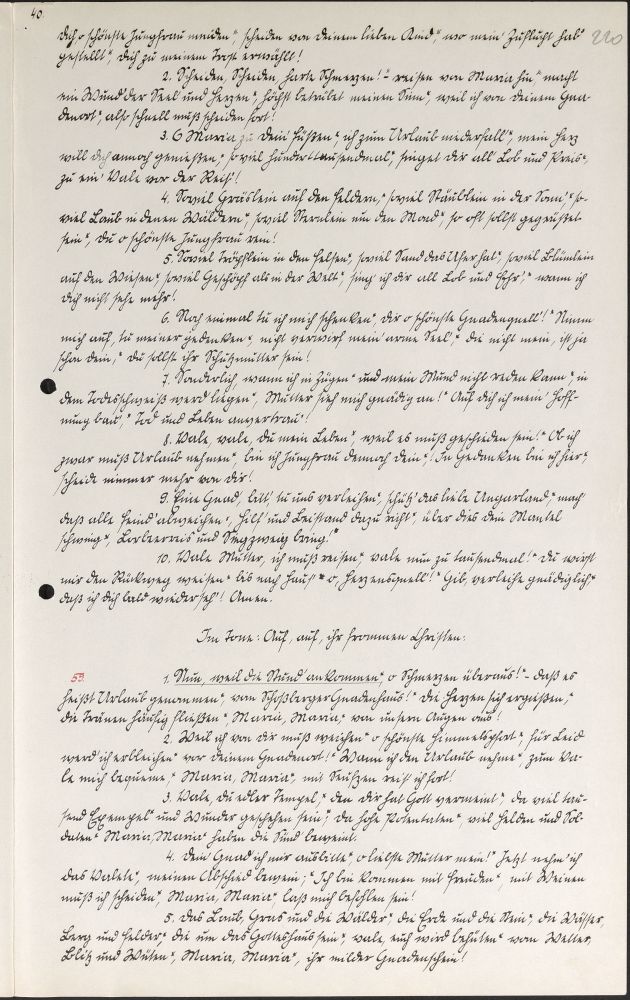 40.
220
dich, o schönste Jungfrau meiden", scheiden von deinem lieben Kind", wo mein' Zuflucht hab'
gestellt", dich zu meinem Trost erwählt!
2. Scheiden, Scheiden, harte Schmerzen! - reisen von Maria hin," macht
ein' Wund' der Seel' und Herzen", höchst betrübet meinen Sinn", weil ich von deinem Gna-
denort", also schnell muß scheiden fort!
3. O Maria, zu dein' Füßen", ich zum Urlaub niederfall", mein Herz
will dich annoch genießen," so viel hunderttausendmal," singet dir all' Lob und Preis",
zu ein' Vale vor der Reis'!
4. Soviel Gräslein auf den Feldern," soviel Stäublein in der Sonn'" so-
viel Laub in denen Wäldern", soviel Sternlein um den Mond", so oft sollst gegrüßet
sein", du o schönste Jungfrau rein!
5. Soviel Tröpflein in den Felsen", soviel Sand das Ufer hat", soviel Blümlein
auf den Wiesen", soviel Geschöpf' als in der Welt", sing' ich dir all' Lob und Ehr'," wann ich
dich nicht sehe mehr!
6. Noch einmal tu ich mich schenken", dir o schönste Gnadenquell'!" Nimm
mich auf, tu meiner gedenken", nicht verwirf mein' arme Seel'," die nicht mein, ist ja
schon dein," du sollst ihr Schutzmutter sein!
7. Sonderlich, wann ich in Zügen" und mein Mund nicht reden kann", in
dem Todesschweiß werd' liegen", Mutter sieh mich gnädig an!" Auf dich ich mein' Hoff-
nung bau'," Tod und Leben anvertrau'!
8. Vale, vale, du mein Leben", weil es muß geschieden sein!" Ob ich
zwar muß Urlaub nehmen", bin ich Jungfrau dennoch dein"! In Gedanken bin ich hier",
scheide nimmer mehr von dir!
9. Eine Gnad', bitt', tu uns verleihen", schütz' das liebe Ungarland," mach'
daß alle Feind' abweichen", Hilf' und Beistand dazu richt'", über dies dein Mantel
schwing'", Lorbeerreis und Siegzweig bring!"
10. Vale Mutter, ich muß reisen", vale nun zu tausendmal!" Du wirst
mir den Rückweg weisen" bis nach Haus' " o, Herzensquell'!" Gib, verleihe gnädiglich"
daß ich dich bald wiederseh'! Amen.
Im Tone: Auf, auf, ihr frommen Christen.
53. 1. Nun, weil die Stund' ankommen", o Schmerzen überaus!" - daß es
heißt Urlaub genommen", vom Schoßberger Gnadenhaus!" Die Herzen sich ergießen,"
die Tränen häufig fließen", Maria, Maria," von unsern Augen aus!
2. Weil ich von dir muß weichen" o schönste Himmelspfort'," für Leid
werd' ich erbleichen" vor deinem Gnadenort!" Wann ich den Urlaub nehme", zum Va-
le mich bequeme," Maria, Maria", mit Seufzen reis' ich fort!
3. Vale, du edler Tempel," den dir hat Gott vermeint", da viel tau-
send Exempel" und Wunder geschehen sein", da hohe Potentaten" viel Helden und Sol-
daten" Maria, Maria" haben die Sünd' beweint.
4. Dein' Gnad' ich mir ausbitte," o liebste Mutter mein!" Jetzt nehm' ich
das Valete", meinen Abschied bewein';" Ich bin kommen mit Freuden", mit Weinen
muß ich scheiden", Maria, Maria", laß mich befohlen sein!
5. Das Laub, Gras und die Wälder", die Erde und die Stein", die Wässer,
Berg und Felder," die um das Gotteshaus sein", vale, euch wird behüten" vom Wetter,
Blitz und Wüten", Maria, Maria", ihr milder Gnadenschein!